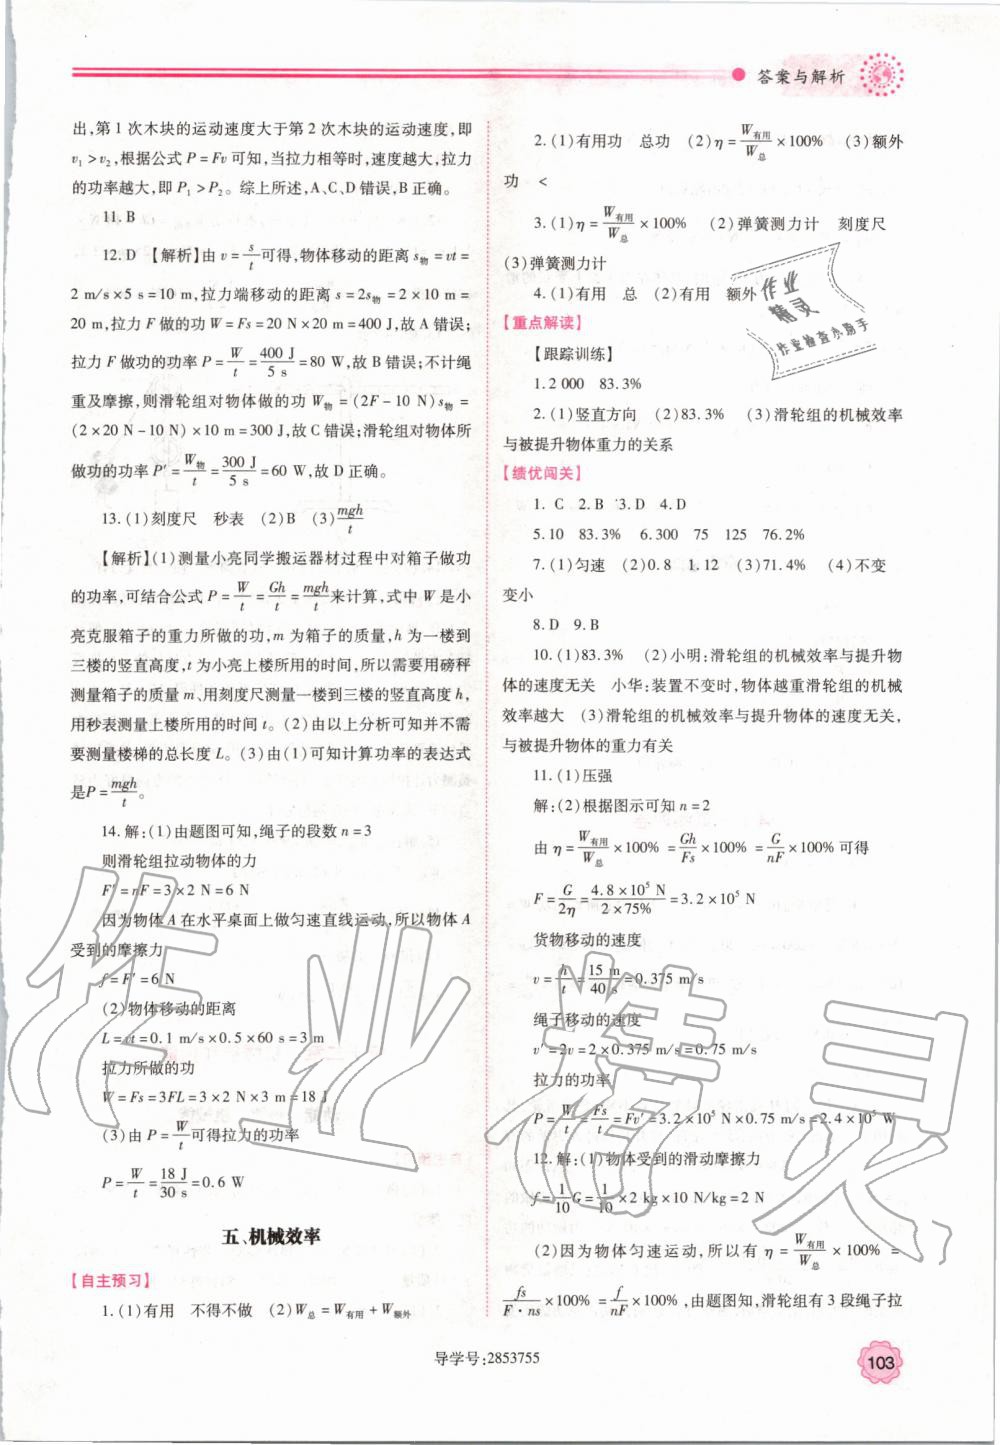 答案与解析
出,第1次木块的运动速度大于第2次木块的运动速度,即
v₁>v₂,根据公式P=Fv可知,当拉力相等时,速度越大,拉力
的功率越大,即P₁>P₂。综上所述,A、C、D错误,B正确。
11.B
12.D 【解析】由v=s/t可得,物体移动的距离s物=vt=
2 m/s×5 s=10 m,拉力端移动的距离s=2s物=2×10 m=
20 m,拉力F做的功W=Fs=20 N×20 m=400 J,故A错误;
拉力F做功的功率P=W/t=400 J/5 s=80 W,故B错误;不计绳
重及摩擦,则滑轮组对物体做的功W物=(2F-10 N)s物=
(2×20 N-10 N)×10 m=300 J,故C错误;滑轮组对物体所
做功的功率P′=W物/t=300 J/5 s=60 W,故D正确。
13.(1)刻度尺 秒表 (2)B (3)mgh/t
【解析】(1)测量小亮同学搬运器材过程中对箱子做功
的功率,可结合公式P=W/t=Gh/t=mgh/t来计算,式中W是小
亮克服箱子的重力所做的功,m为箱子的质量,h为一楼到
三楼的竖直高度,t为小亮上楼所用的时间,所以需要用磅秤
测量箱子的质量m、用刻度尺测量一楼到三楼的竖直高度h,
用秒表测量上楼所用的时间t。(2)由以上分析可知并不需
要测量楼梯的总长度L。(3)由(1)可知计算功率的表达式
是P=mgh/t。
14.解:(1)由题图可知,绳子的段数n=3
则滑轮组拉动物体的力
F′=nF=3×2 N=6 N
因为物体A在水平桌面上做匀速直线运动,所以物体A
受到的摩擦力
f=F′=6 N
(2)物体移动的距离
L=vt=0.1 m/s×0.5×60 s=3 m
拉力所做的功
W=Fs=3FL=3×2 N×3 m=18 J
(3)由P=W/t可得拉力的功率
P=W/t=18 J/30 s=0.6 W
五、机械效率
【自主预习】
1.(1)有用 不得不做 (2)W总=W有用+W额外
2.(1)有用功 总功 (2)η=W有用/W总×100% (3)额外
功 <
3.(1)η=W有用/W总×100% (2)弹簧测力计 刻度尺
(3)弹簧测力计
4.(1)有用 总 (2)有用 额外
【重点解读】
【跟踪训练】
1.2 000 83.3%
2.(1)竖直方向 (2)83.3% (3)滑轮组的机械效率
与被提升物体重力的关系
【绩优闯关】
1.C 2.B 3.D 4.D
5.10 83.3% 6.300 75 125 76.2%
7.(1)匀速 (2)0.8 1.12 (3)71.4% (4)不变
变小
8.D 9.B
10.(1)83.3% (2)小明:滑轮组的机械效率与提升物
体的速度无关 小华:装置不变时,物体越重滑轮组的机械
效率越大 (3)滑轮组的机械效率与提升物体的速度无关,
与被提升物体的重力有关
11.(1)压强
解:(2)根据图示可知n=2
由η=W有用/W总×100%=Gh/Fs×100%=G/nF×100%可得
F=G/2η=4.8×10⁵ N/2×75%=3.2×10⁵ N
货物移动的速度
v=h/t=15 m/40 s=0.375 m/s
绳子移动的速度
v′=2v=2×0.375 m/s=0.75 m/s
拉力的功率
P=W/t=Fs/t=Fv′=3.2×10⁵ N×0.75 m/s=2.4×10⁵ W
12.解:(1)物体受到的滑动摩擦力
f=1/10G=1/10×2 kg×10 N/kg=2 N
(2)因为物体匀速运动,所以有η=W有用/W总×100%=
fs/F·ns×100%=f/nF×100%,由题图知,滑轮组有3段绳子拉
作业
精灵
作业检查小助手
作业精灵
导学号:2853755
103